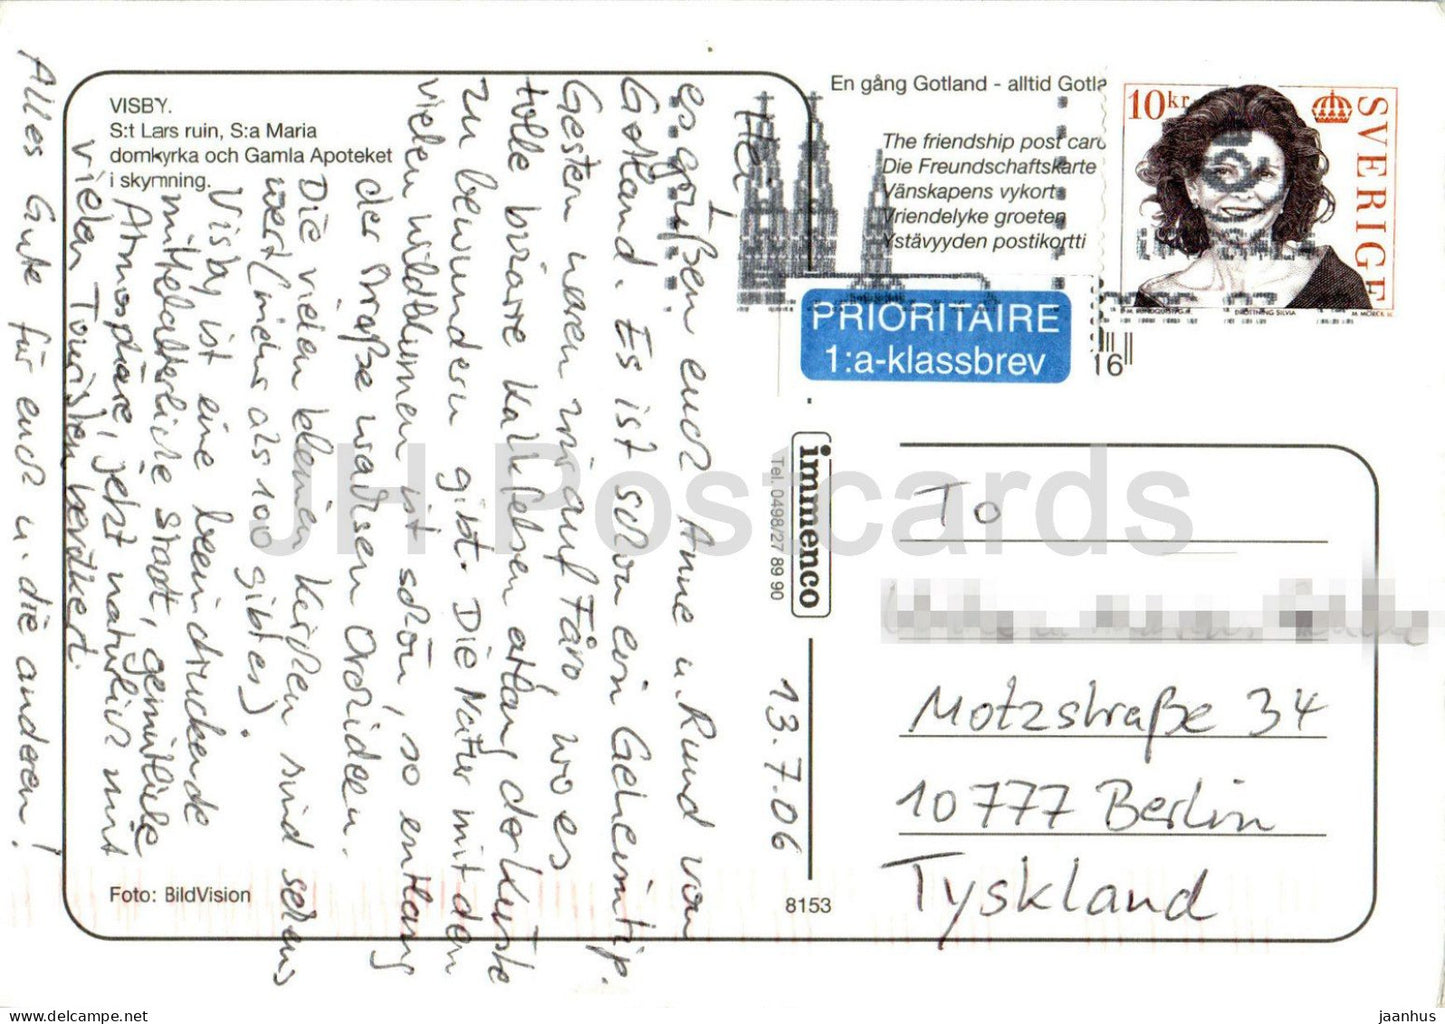 VISBY.
S:t Lars ruin, S:a Maria
domkyrka och Gamla Apoteket
i skymning.
En gång Gotland - alltid Gotla
The friendship post card
Die Freundschaftskarte
Vänskapens vykort
Vriendelyke groeten
Ystävyyden postikortti
10kr
SVERIGE
DROTTNING SILVIA
PRIORITAIRE
1:a-klassbrev
16
immenco
Tel. 0498/27 89 90
13.7.06
es grüßen euch Anne u. Rund von
Gotland. Es ist schon ein Geheimtip.
Gestern waren wir auf Fårö, wo es
tolle bizarre Kalkfelsen entlang der Küste
zu bewundern gibt. Die Natur mit den
vielen Wildblumen ist schön, so entlang
der Straße wachsen Orchideen.
Die vielen kleinen Kirchen sind sehens
wert (mehr als 100 gibt es).
Visby ist eine beeindruckende
mittelalterliche Stadt, gemütliche
Atmosphäre, jetzt natürlich mit
vielen Touristen bevölkert.
Alles Gute für euch u. die anderen!
To
Motzstraße 34
10777 Berlin
Tyskland
Foto: BildVision
8153
JH Postcards
jaanhus